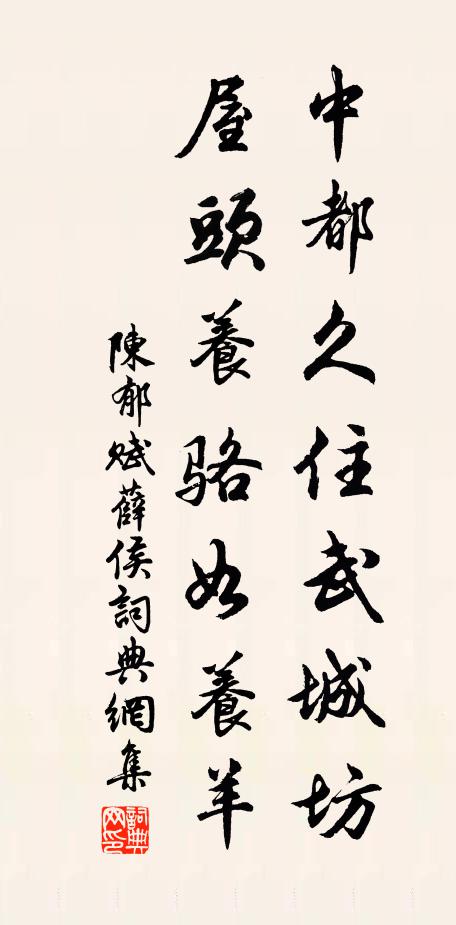 中都久住武城坊
屋頭養骆如養羊
陳郁赋薛侯詞典網集
詞典网印